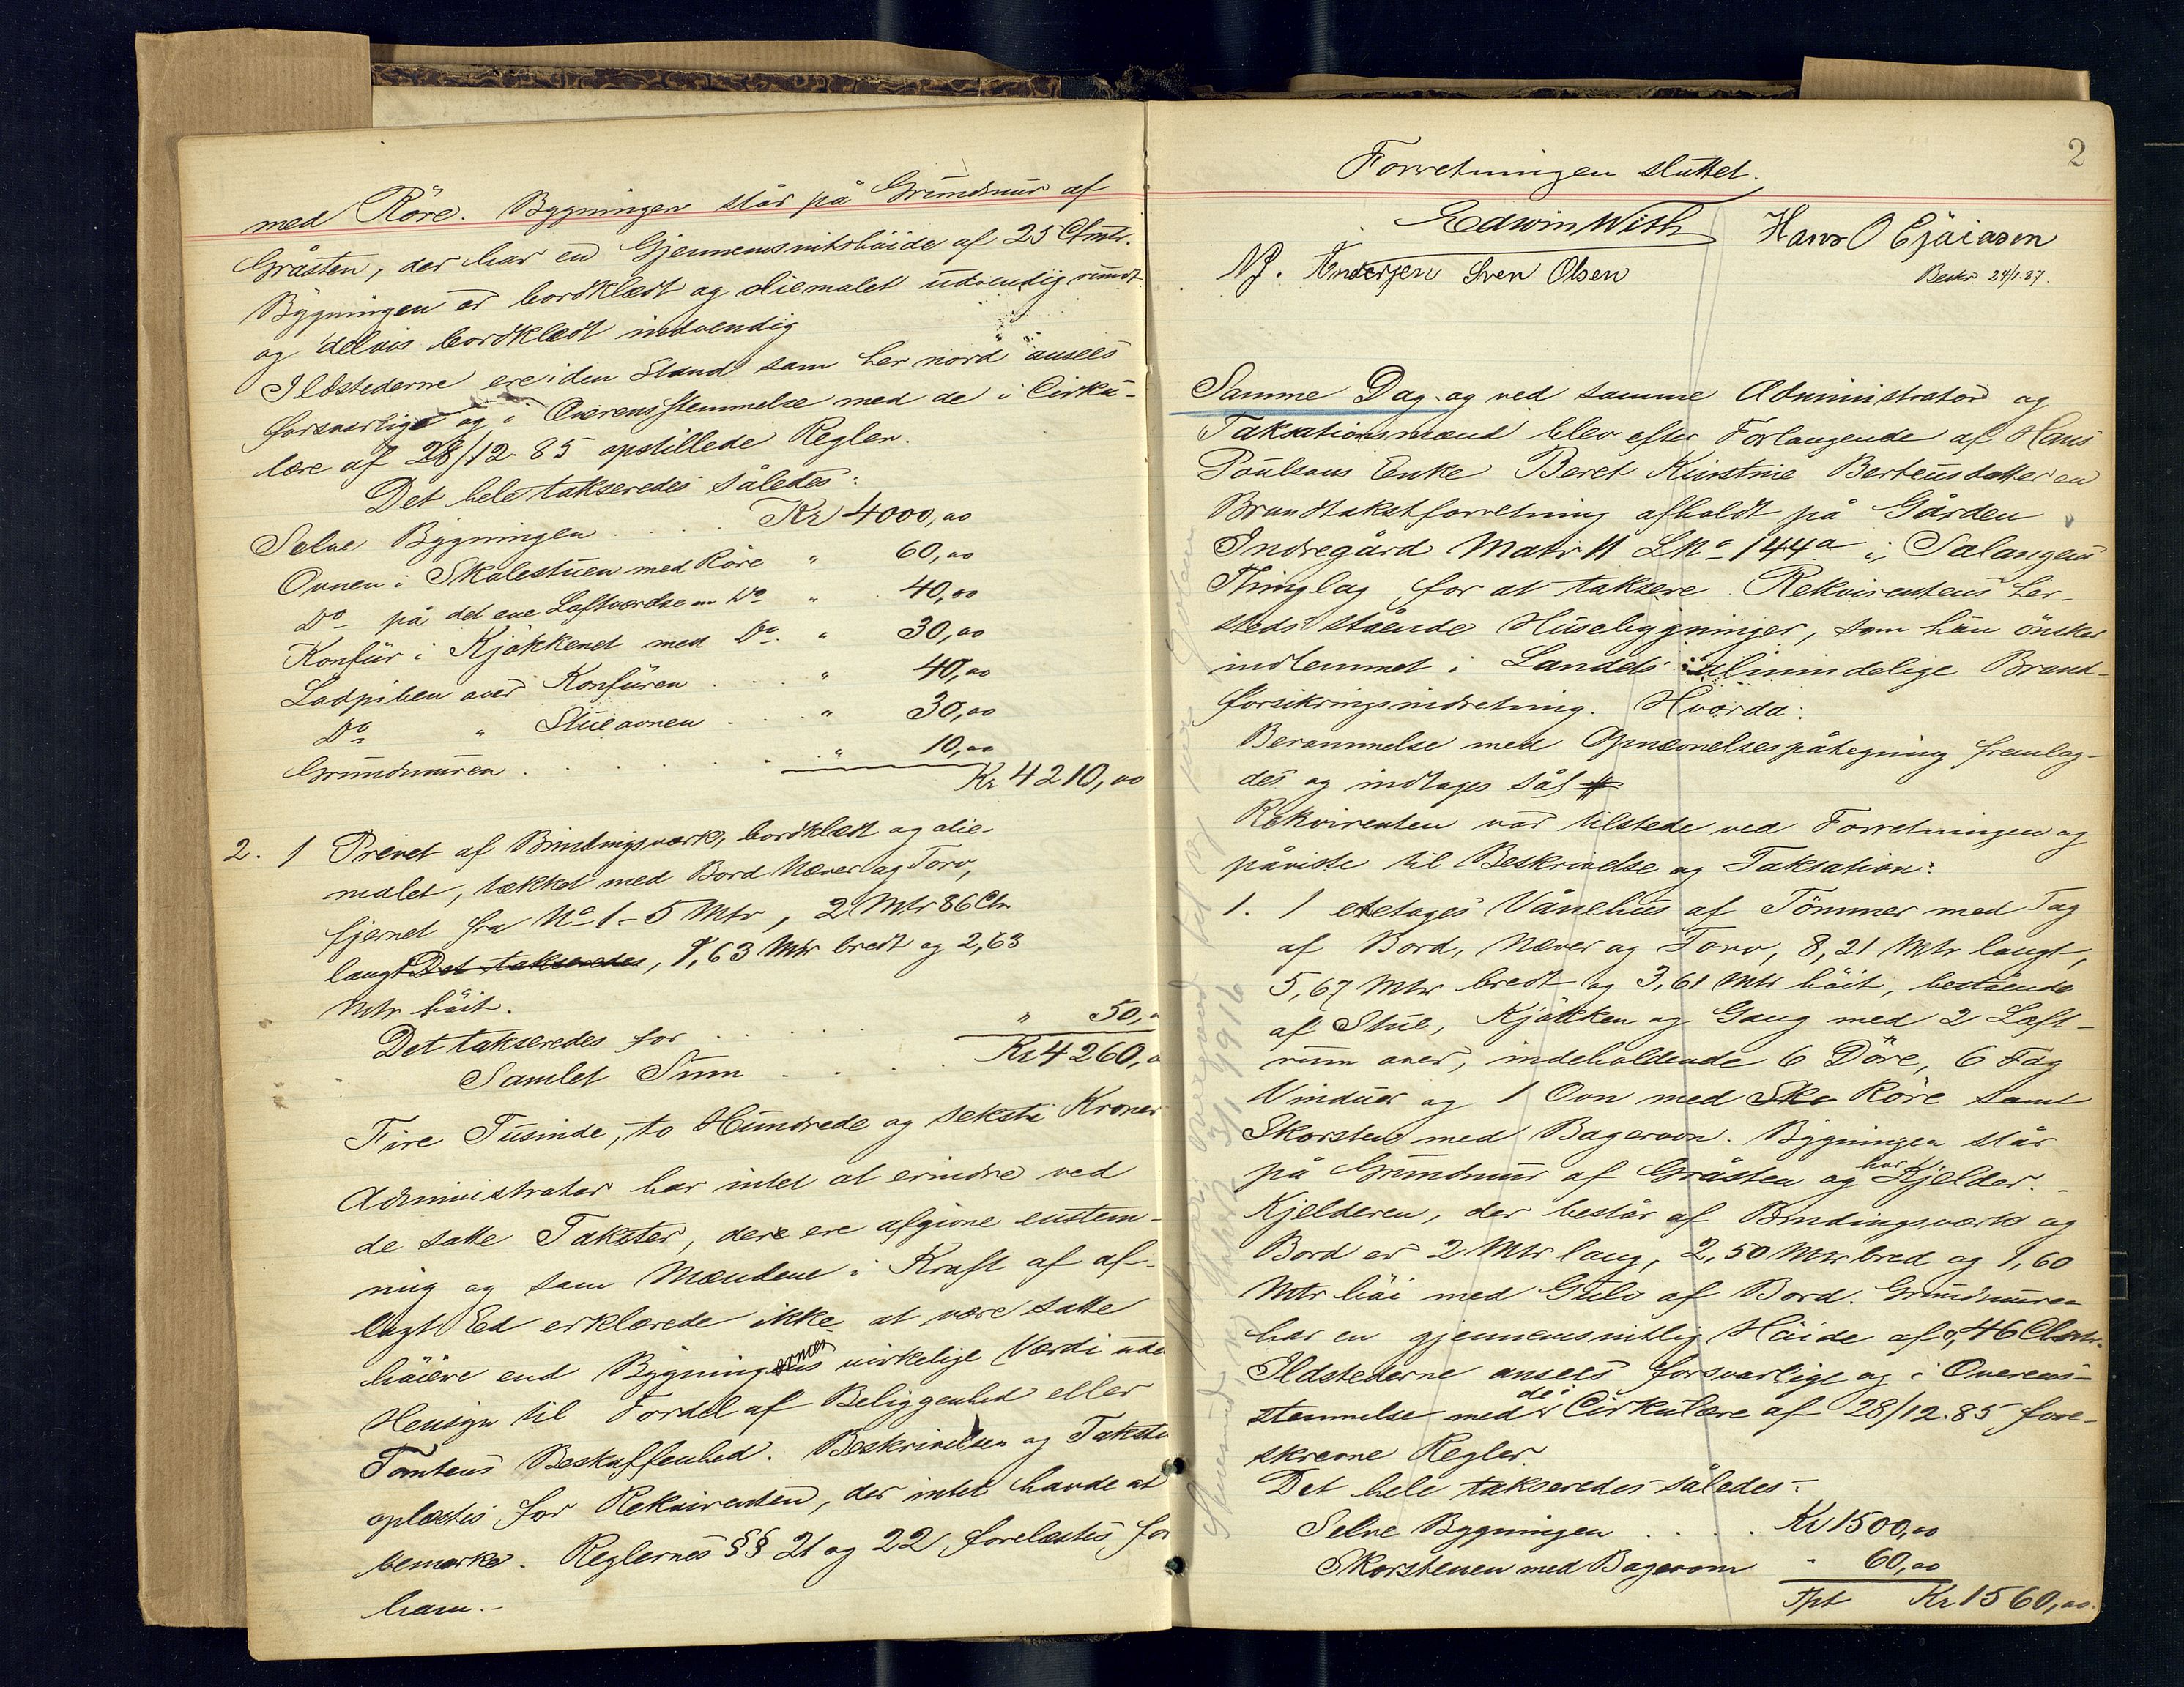 med Röre. Bygningen står på Grundmur af
Gråsten, der har en Gjennemsnitshöide af 25 Ctmtr.
Bygningen er bordklædt og oliemalet udvendig rundt
og delvis bordklædt indvendig
Ildstederne ere i den Stand som her nord ansees
forsvarlige og i Overensstemmelse med de i Cirku-
lære af 28/12.85 opstillede Regler.
Det hele takseredes således:
Selve Bygningen . . . . Kr 4000,00
Ovnen i Skolestuen med Röre " 60,00
Do på det ene Loftværelse m Do " 40,00
Komfur i Kjökkenet med Do. " 30,00
Ladpiben over Komfuren . . . " 40,00
Do " Stueovnen . . . . " 30,00
Grundmuren . . . . . . . " 10,00
Kr 4210,00
2. 1 Privet af Bindingsværk, bordklædt og olie-
malet, tækket med Bord Næver og Torv,
fjernet fra No 1 - 5 Mtr, 2 Mtr 86 Ctm
langt Det takseredes, 1,63 Mtr bredt og 2,63
Mtr höit.
Det takseredes for . . . . . " 50,
Samlet Sum . . . . . Kr 4260,
Fire Tusinde, to Hundrede og seksti Kroner
Administrator har intet at erindre ved
de satte Takster, dere ere afgivne enstem-
mig og som Mændene i Kraft af af-
lagt Ed erklærede ikke at være satte
höiere end Bygningernes virkelige Værdi uden
Hensyn til Fordel af Beliggenhed eller
Tomtens Beskaffenhed. Beskrivelsen og Taksten
oplæstes for Rekvirenten, der intet havde at
bemærke. Reglernes §§ 21 og 22 forelæstes for
ham.-
2
Forretningen sluttet.
Edwin With Hans O
N. J. Andersen Sven Olsen
Beskr. 24/1.87.
Samme Dag og ved samme Administrator og
Taksationsmænd blev efter Forlangende af Hans
Poulsens Enke Beret Kirstine Bertheusdatter en
Brandtakstforretning afholdt på Gården
Indregård Matr 11 LNo 144a i Salangens
Thinglag, for at taksere Rekvirentens her-
steds stående Husebygninger, som hun önsker
indlemmet i Landets almindelige Brand-
forsikringsindretning. Hvorda:
Berammelse med Opnævnelsespåtegning fremlag-
des og indtages sål #
Rekvirenten var tilstede ved Forretningen og
påviste til Beskrivelse og Taksation:
1. 1 etetages Vånehus af Tömmer med Tag
af Bord, Næver og Torv, 8,21 Mtr langt,
5,67 Mtr bredt og 3,61 Mtr höit, bestående
af Stue, Kjökken og Gang med 2 Loft-
rum over, indeholdende 6 Döre, 6 Fag
Vinduer og 1 Ovn med Sko Röre samt
Skorsten med Bagerovn. Bygningen står
på Grundmur af Gråsten og har Kjelder.
Kjelderen, der består af Bindingsværk og
Bord er 2 Mtr lang, 2,50 Mtr bred og 1,60
Mtr höi med Gulv af Bord. Grundmuren
har en gjennemsnitlig Höide af 0,46 Ctmtr.
Ildstederne ansees forsvarlige og i Overens-
stemmelse med de i Cirkulære af 28/12.85 fore-
skrevne Regler.
Det hele takseredes således:
Selve Bygningen . . . . Kr 1500,00
Skorstenen med Bagerovn " 60,00
Tpt Kr 1560,00
3/1 1916